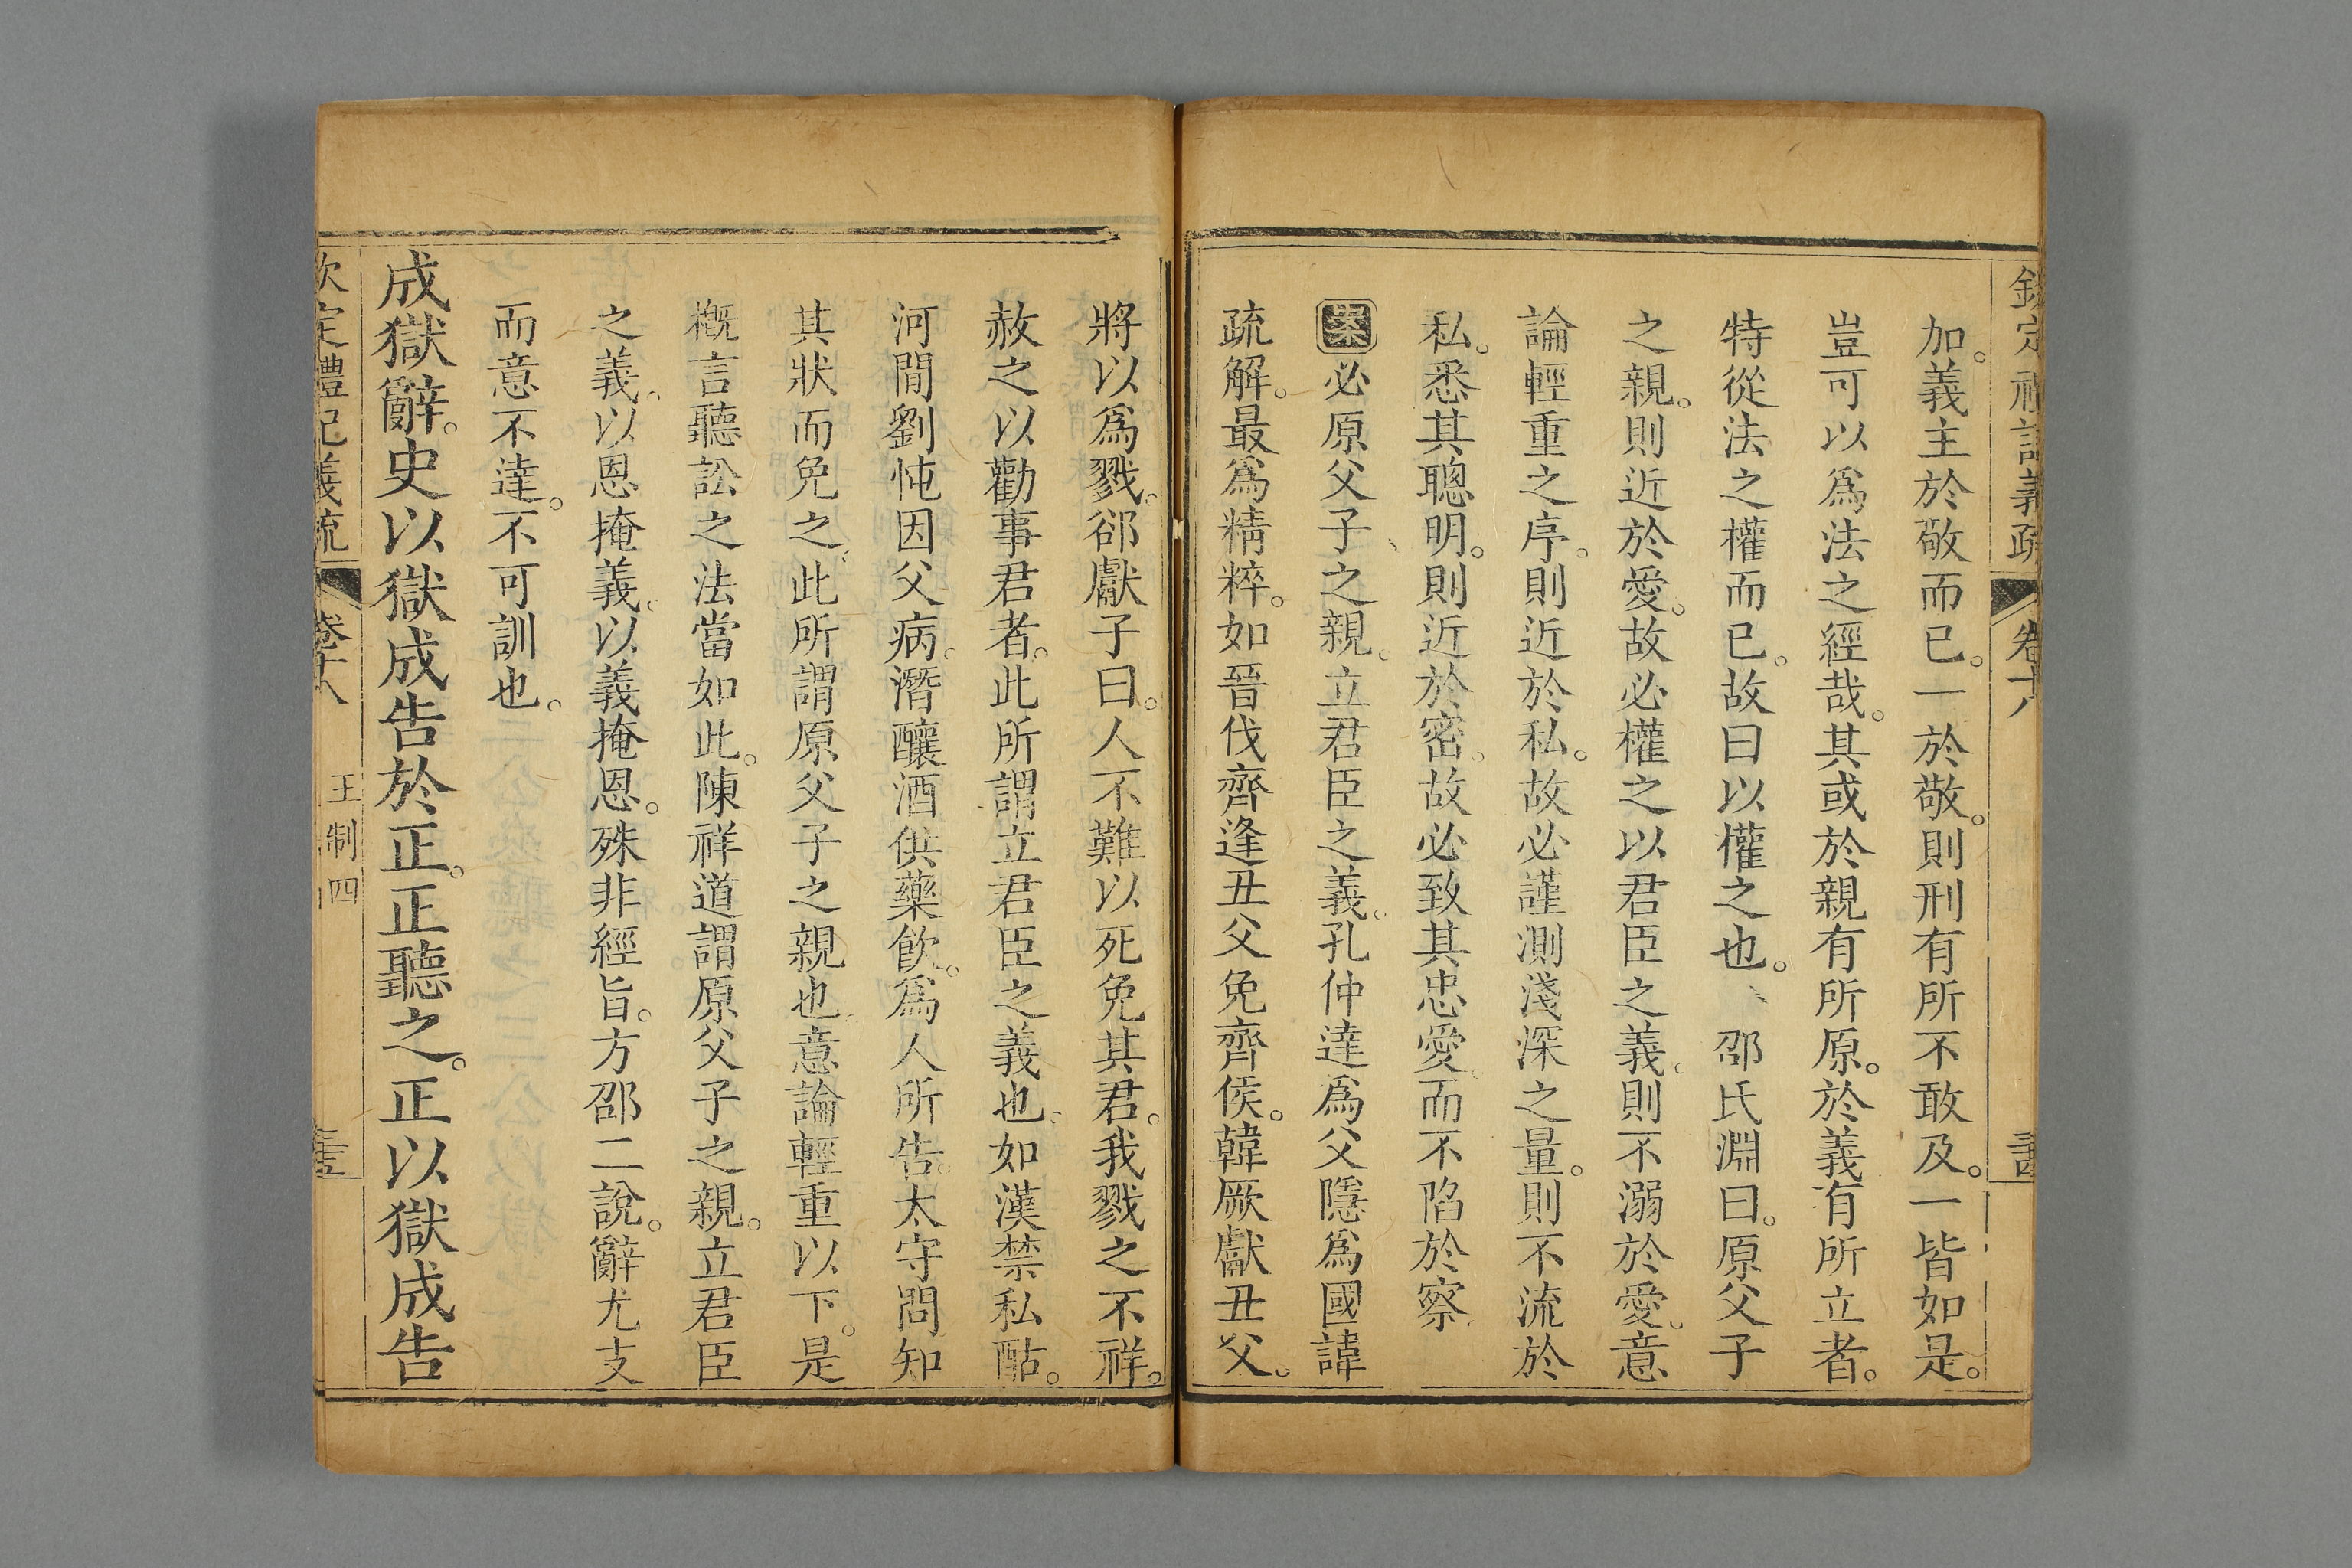 欽定禮記義疏 卷十八
加。義主於敬而已。一於敬。則刑有所不敢及。一皆如是。
豈可以爲法之經哉。其或於親有所原。於義有所立者。
特從法之權而已。故曰以權之也。、邵氏淵曰。原父子
之親。則近於愛。故必權之以君臣之義。則不溺於愛。意
論輕重之序。則近於私。故必謹測淺深之量。則不流於
私。悉其聰明。則近於密。故必致其忠愛。而不陷於察
案必原父子、之親。立君臣之義。孔仲達爲父隱爲國諱
疏解。最爲精粹。如晉伐齊逢丑父免齊侯。韓厥獻丑父。
將以爲戮。郤獻子曰。人不難以死免其君。我戮之不祥。
赦之以勸事君者。此所謂立君臣之義也。如漢禁私酤。
河閒劉忳因父病。潛釀酒供藥飲。爲人所告。太守問知
其狀而免之。此所謂原父子之親也。意論輕重以下。是
槪言聽訟之法當如此。陳祥道謂原父子之親。立君臣
之義。以恩掩義。以義掩恩。殊非經旨。方邵二說。辭尤支
而意不達。不可訓也。
成獄辭。史以獄成告於正。正聽之。正以獄成告
欽定禮記義疏 卷十八 王制四